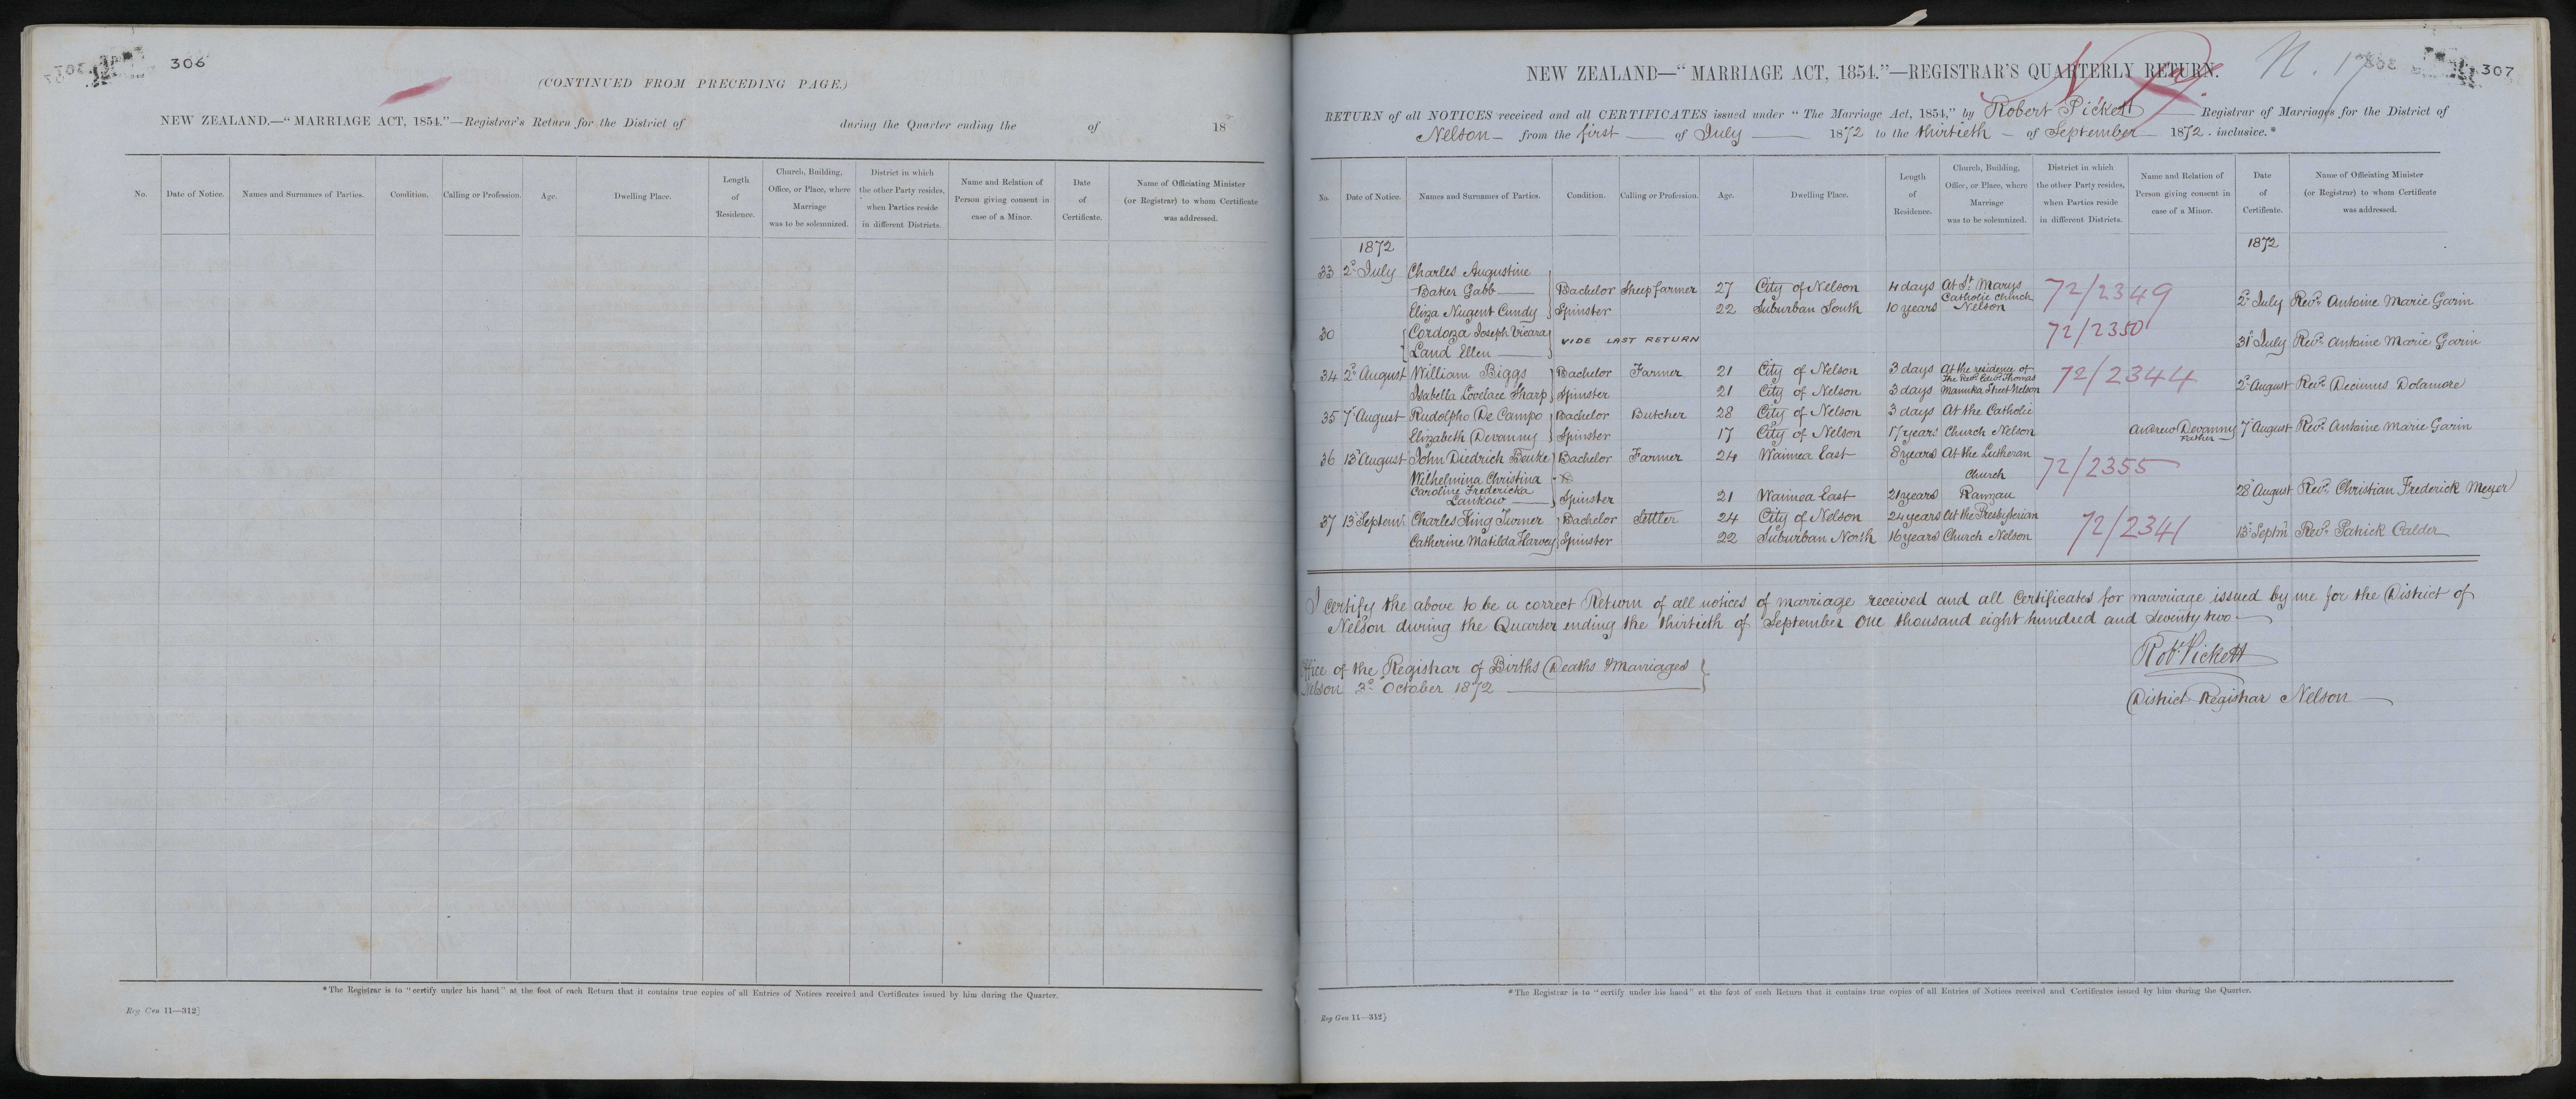 306
(CONTINUED FROM PRECEDING PAGE.)
NEW ZEALAND.—“MARRIAGE ACT, 1854.”—Registrar's Return for the District of during the Quarter ending the of 18
No. Date of Notice. Names and Surnames of Parties. Condition. Calling or Profession. Age. Dwelling Place. Length of Residence. Church, Building, Office, or Place, where Marriage was to be solemnized. District in which the other Party resides, when Parties reside in different Districts. Name and Relation of Person giving consent in case of a Minor. Date of Certificate. Name of Officiating Minister (or Registrar) to whom Certificate was addressed.
*The Registrar is to “certify under his hand” at the foot of each Return that it contains true copies of all Entries of Notices received and Certificates issued by him during the Quarter.
Reg Gen 11—312}
307
NEW ZEALAND—“MARRIAGE ACT, 1854.”—REGISTRAR'S QUARTERLY RETURN.
N. 17
RETURN of all NOTICES received and all CERTIFICATES issued under “The Marriage Act, 1854,” by Robert Pickett Registrar of Marriages for the District of
Nelson — from the first — of July — 1872 to the thirtieth — of September — 1872 . inclusive.*
No. Date of Notice. Names and Surnames of Parties. Condition. Calling or Profession. Age. Dwelling Place. Length of Residence. Church, Building, Office, or Place, where Marriage was to be solemnized. District in which the other Party resides, when Parties reside in different Districts. Name and Relation of Person giving consent in case of a Minor. Date of Certificate. Name of Officiating Minister (or Registrar) to whom Certificate was addressed.
1872 1872
33 2d July Charles Augustine
Baker Gabb Bachelor Sheepfarmer 27 City of Nelson 4 days At St Marys Catholic Church 72/2349
Eliza Nugent Cundy Spinster 22 Suburban South 10 years Nelson 2d July Revd. Antoine Marie Garin
30 Cordoza Joseph Vicara VIDE LAST RETURN 72/2350
Land Ellen 31st July Revd. Antoine Marie Garin
34 2d August William Biggs Bachelor Farmer 21 City of Nelson 3 days At the residence of The Revd. Edwd. Thomas 72/2344
Isabella Lovelace Sharp Spinster 21 City of Nelson 3 days Manuka Street Nelson 2d August Revd. Decimus Dolamore
35 7th August Rudolpho De Campo Bachelor Butcher 28 City of Nelson 3 days At the Catholic
Elizabeth Devanny Spinster 17 City of Nelson 17 years Church Nelson Andrew Devanny Father 7th August Revd. Antoine Marie Garin
36 13th August John Diedrich Beuke Bachelor Farmer 24 Waimea East 8 years At the Lutheran
Wilhelmina Christina Church 72/2355
Caroline Fredericka
Lankow Spinster 21 Waimea East 21 years Ranzau 28th August Revd. Christian Frederick Meyer
37 13th Septemr. Charles King Turner Bachelor Settler 24 City of Nelson 24 years At the Presbyterian 72/2341
Catherine Matilda Harvey Spinster 22 Suburban North 16 years Church Nelson 13th Septm. Revd. Patrick Calder
I certify the above to be a correct Return of all notices of marriage received and all Certificates for marriage issued by me for the District of
Nelson during the Quarter ending the thirtieth of September One thousand eight hundred and seventy two
Robt. Pickett
Office of the Registrar of Births Deaths & Marriages
Nelson 3d October 1872
District Registrar Nelson
*The Registrar is to “certify under his hand” at the foot of each Return that it contains true copies of all Entries of Notices received and Certificates issued by him during the Quarter.
Reg Gen 11—312}